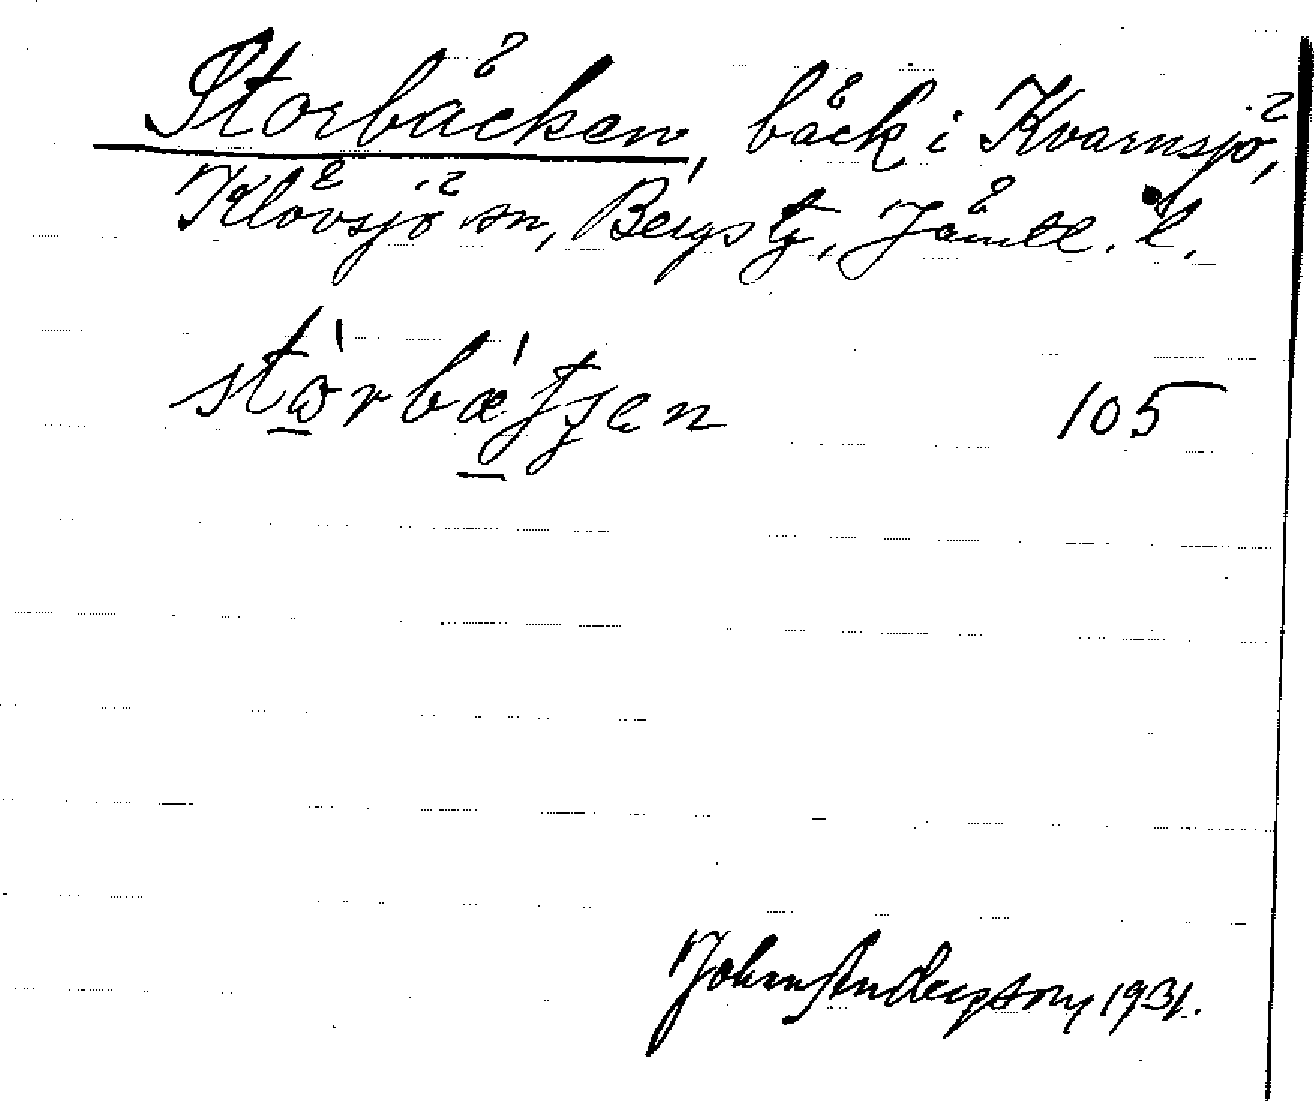 Storbäcken, bäck i Kvarnsjö,
Klövsjö sn, Bergs tg, Jämtl. l.
105
John Andersson, 1931.